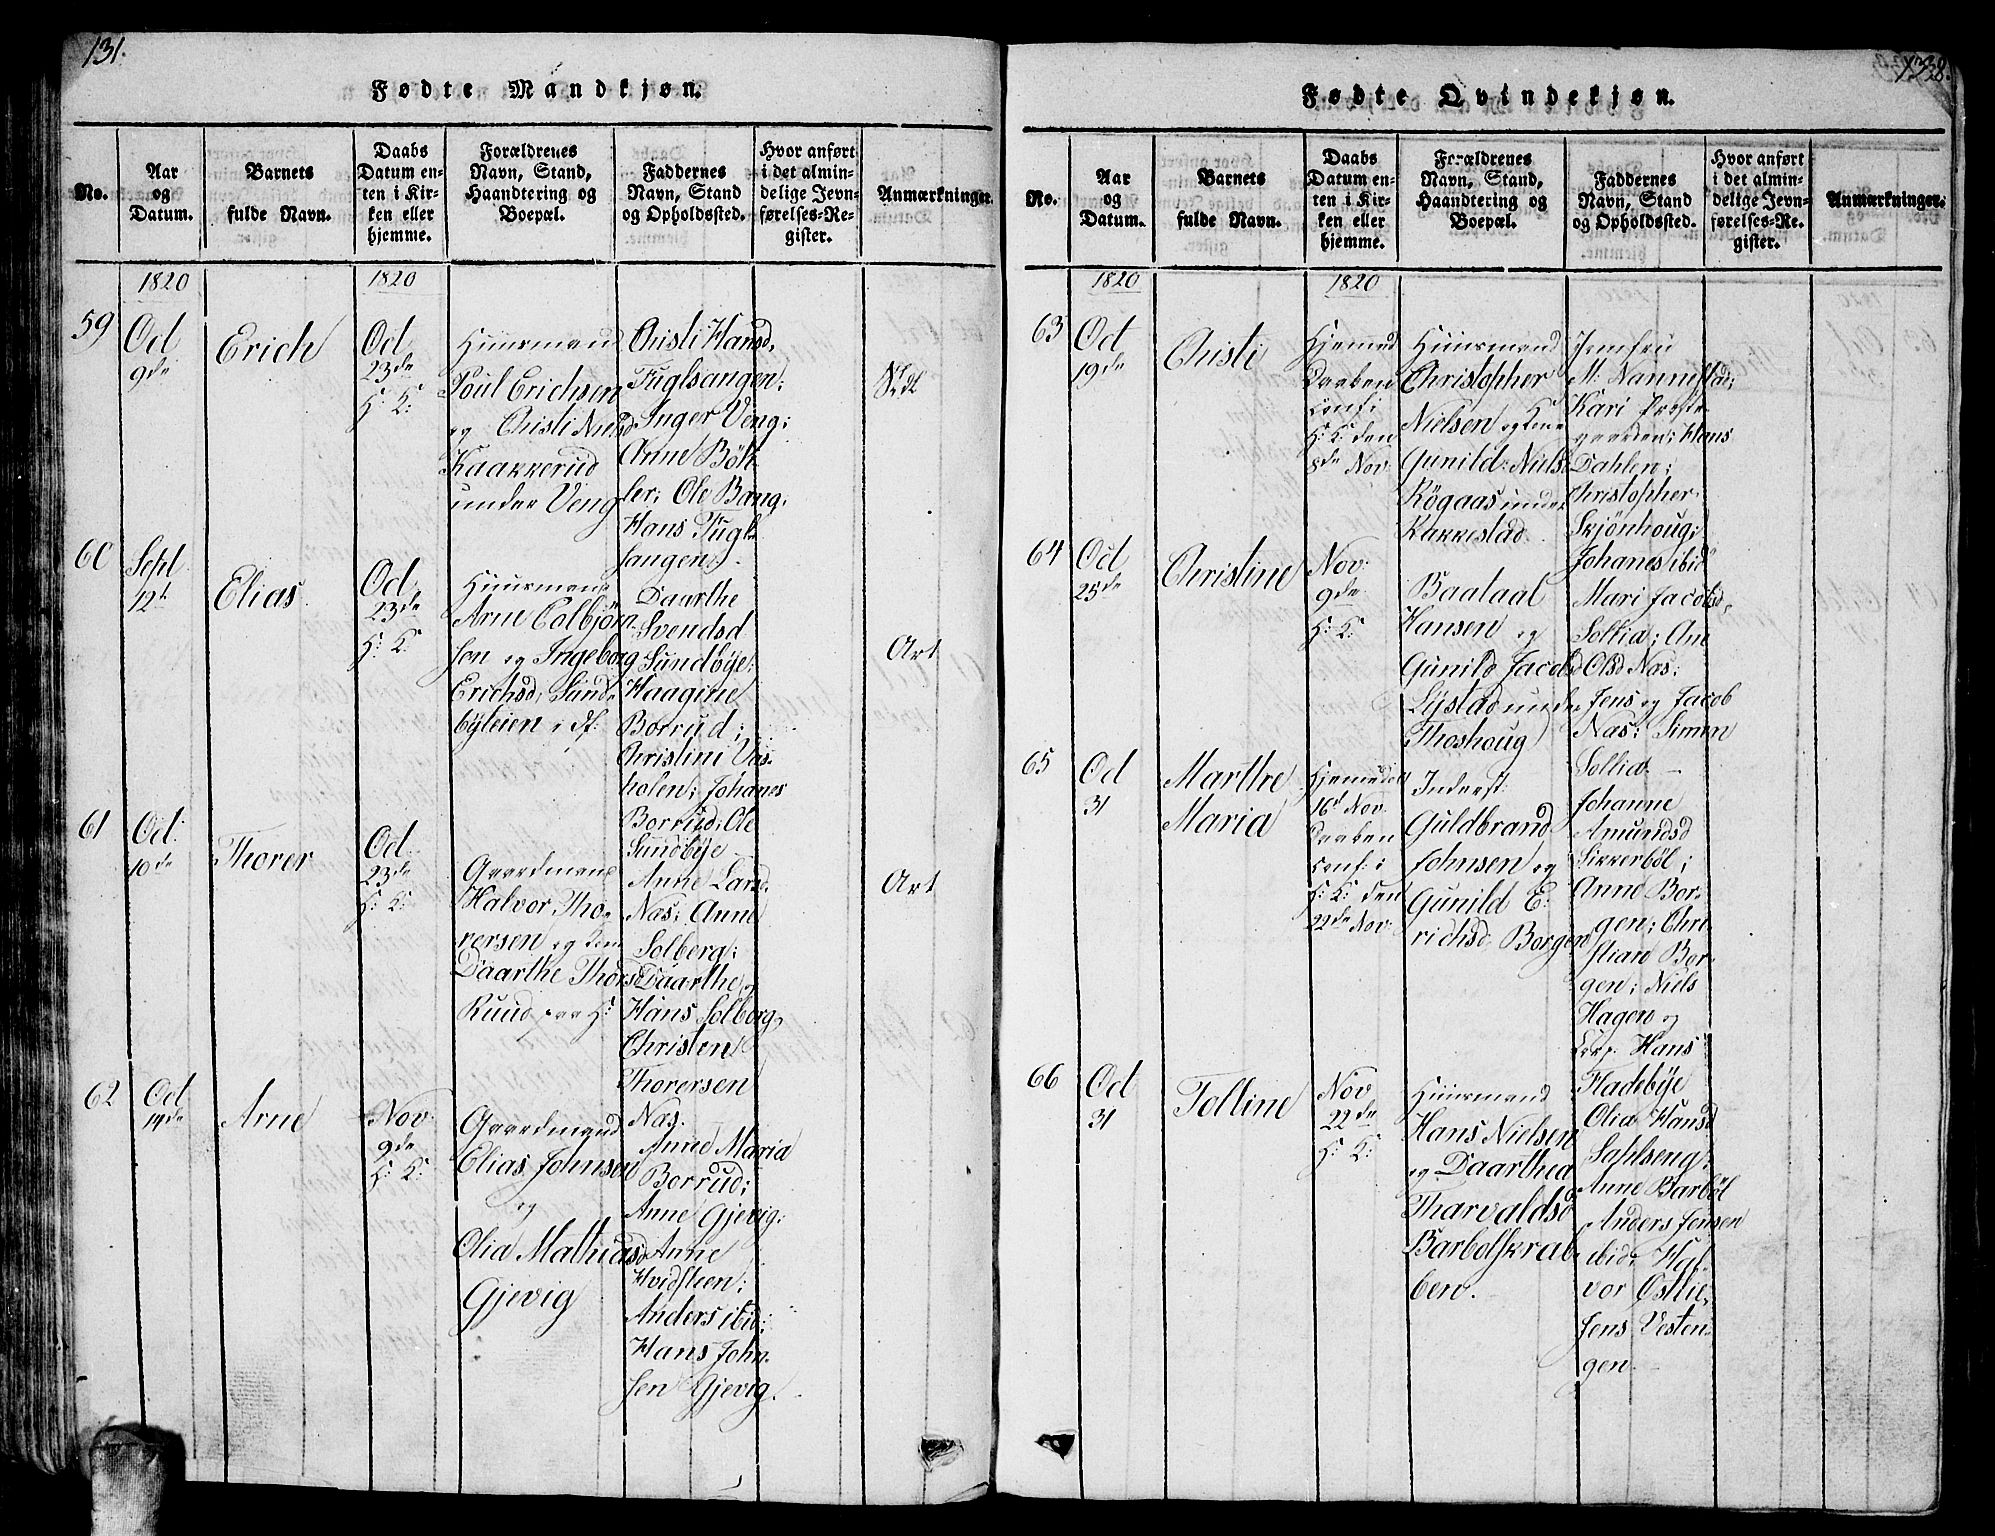 131.
Fødte Mandkjøn.
No.
Aar
og
Datum.
Barnets
fulde Navn.
Daabs
Datum en-
ten i Kir-
ken eller
hjemme.
Forældrenes
Navn, Stand,
Haandtering og
Boepæl.
Faddernes
Navn, Stand
og Opholdssted.
Hvor anført
i det almin-
delige Jevn-
førelses-Re-
gister.
Anmærkninger.
1820
1820
59
Oct
9de
Erich
Oct
23de
H: K:
Huusmand
Poul Erichsen
og Christi Nielsd
Kaakkerud
under Veng
Christi Hansd,
Fuglsangen;
Inger Veng;
Anne Böh-
ler; Ole Bang;
Hans Fugl-
sangen.
60
Sept
12te
Elias
Oct
23de
H: K:
Huusmand
Arne Colbjörn-
sen og Ingeborg
Erichsd, Sund-
byleien i df:
Daarthe
Svendsd
Sundbÿe;
Haagine
Borrud;
Christini Vas-
holen; Johanes
Borrud; Ole
Sundbÿe
Art
61
Oct:
10de
Thorer
Oct
23de
H: K:
Gaardmand
Halvor Tho-
rersen og Kone
Daarthe Thorsd
Ruud paa H:
Anne Larsd
Nas; Anne
Solberg;
Daarthe og
Hans Solberg,
Christen
Thorersen
Nas.
Art
62
Oct
14de
Arne
Nov:
9de
H: K:
Gaardmand
Elias Johnsen
og
Olia Mathiasd
Gjevig
Anne Maria
Borrud;
Anne Gjevig;
Anne
Hvidsteen;
Anders ibid;
Hans John-
sen Gjevig.
1338.
Fødte Qvindekjøn.
No.
Aar
og
Datum.
Barnets
fulde Navn.
Daabs
Datum en-
ten i Kir-
ken eller
hjemme.
Forældrenes
Navn, Stand,
Haandtering og
Boepæl.
Faddernes
Navn, Stand
og Opholdssted.
Hvor anført
i det almin-
delige Jevn-
førelses-Re-
gister.
Anmærkninger.
1820
1820
63
Oct
19de
Christi
Hjemed
Daaben
Conf: i
H: K: den
8de Nov:
Huusmand
Christopher
Nielsen og Kone
Gunild Niels
Rögaas under
Kakkestad
Jomfru
M: Nannestad;
Kari Præste-
gaarden; Hans
Dahlen;
Christopher
Skjönhoug;
Johanes ibid
64
Oct
25de
Christine
Nov:
9de
H: K:
Baataal
Hansen og
Gunild Jacobsd
Lÿstad under
Thoshoug
Mari Jacobsd,
Sollia; Ane
Olsd Nas;
Jens og Jacob
Nas; Simen
Sollia.
65
Oct
31
Marthe
Maria
Hjemedøbt
16de Nov.
Daaben
Conf: i
H: K: den
22de Nov:
Inderst:
Guldbrand
Johnsen og
Gunild E-
richsd. Borgen
Johanne
Amundsd
Sikkerböl;
Anne Bor-
gen; Chri-
stian Bor-
gen; Niels
Hagen og
Corp. Hans
Fladebÿe
66
Oct
31
Tolline
Nov
22de
H: K:
Huusmand
Hans Nielsen
og Daarthea
Tharvaldsd
Barbölskrab-
ben.
Olia Hansd
Sahlseng;
Anne Barböl
Anders Jensen
ibid; Hal-
vor Østlie,
Jens Vesten-
gen.